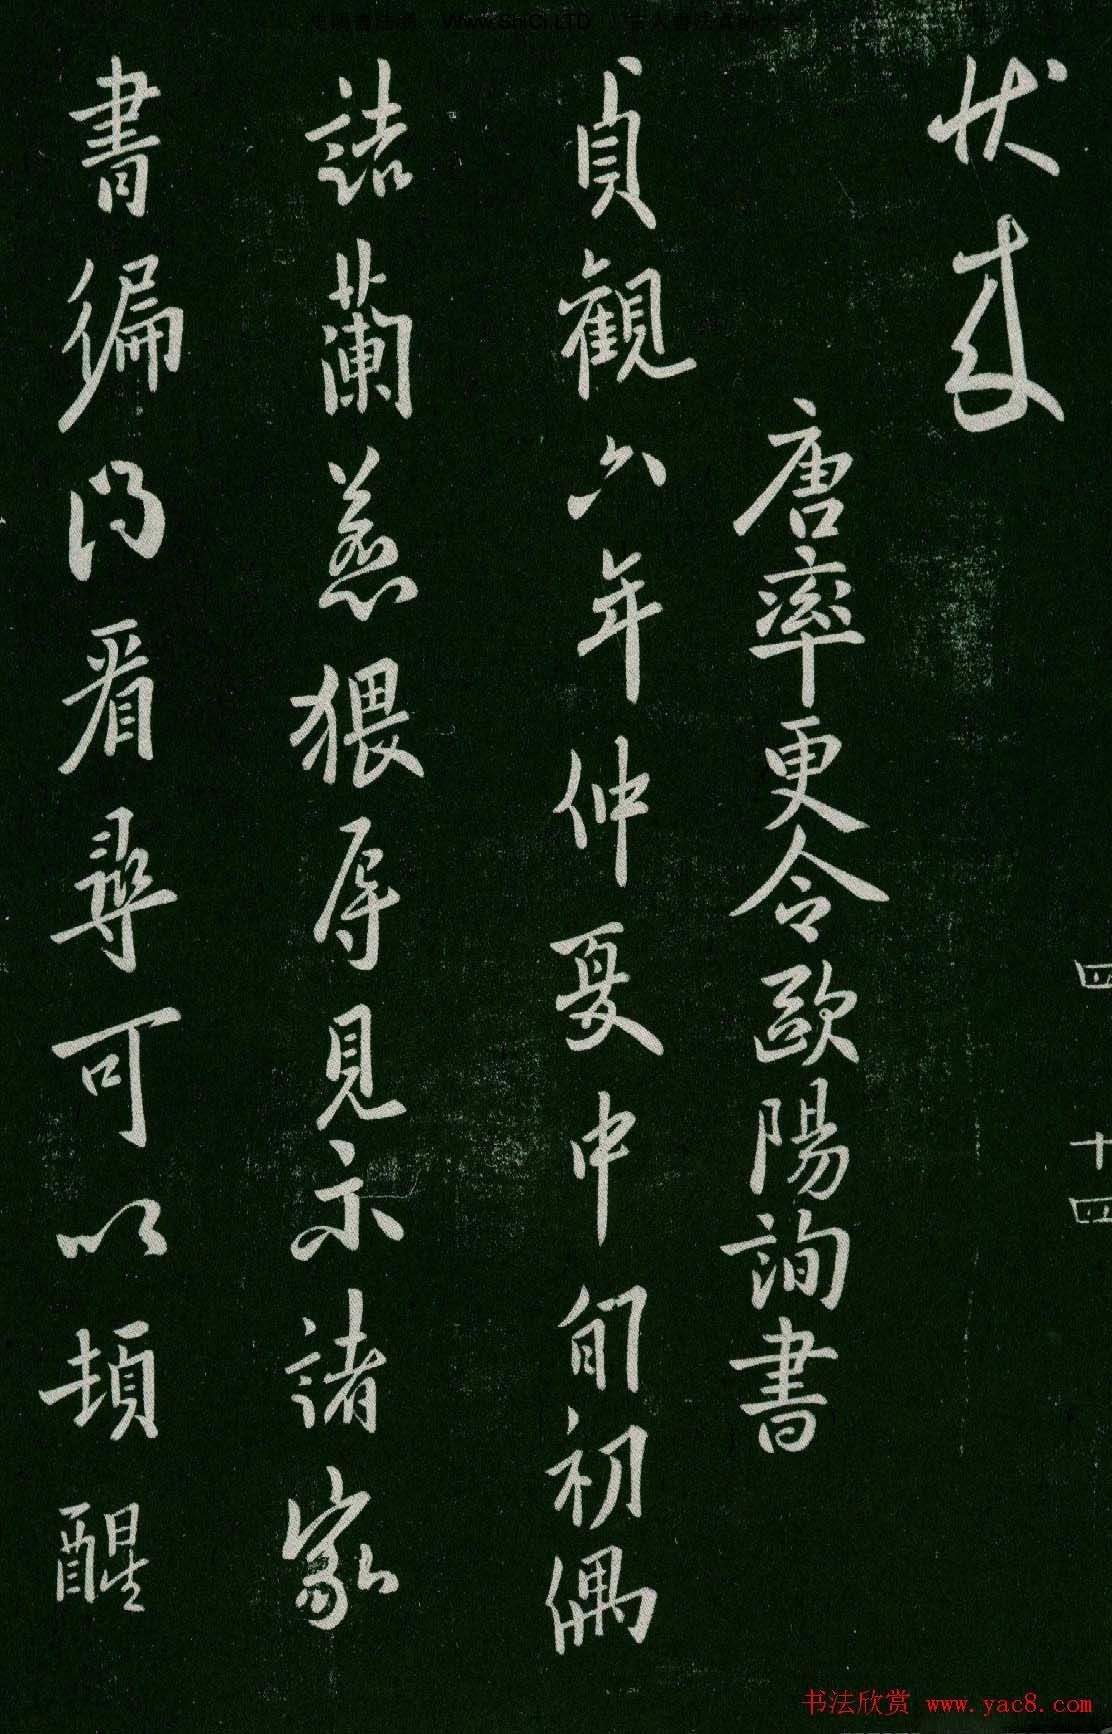 伏受
唐率更令歐陽詢書
貞觀六年仲夏中旬初偶
詣蘭若猥辱見示諸家
書徧得看尋可以頓醒
四 十四
书法欣赏 www.yac8.com